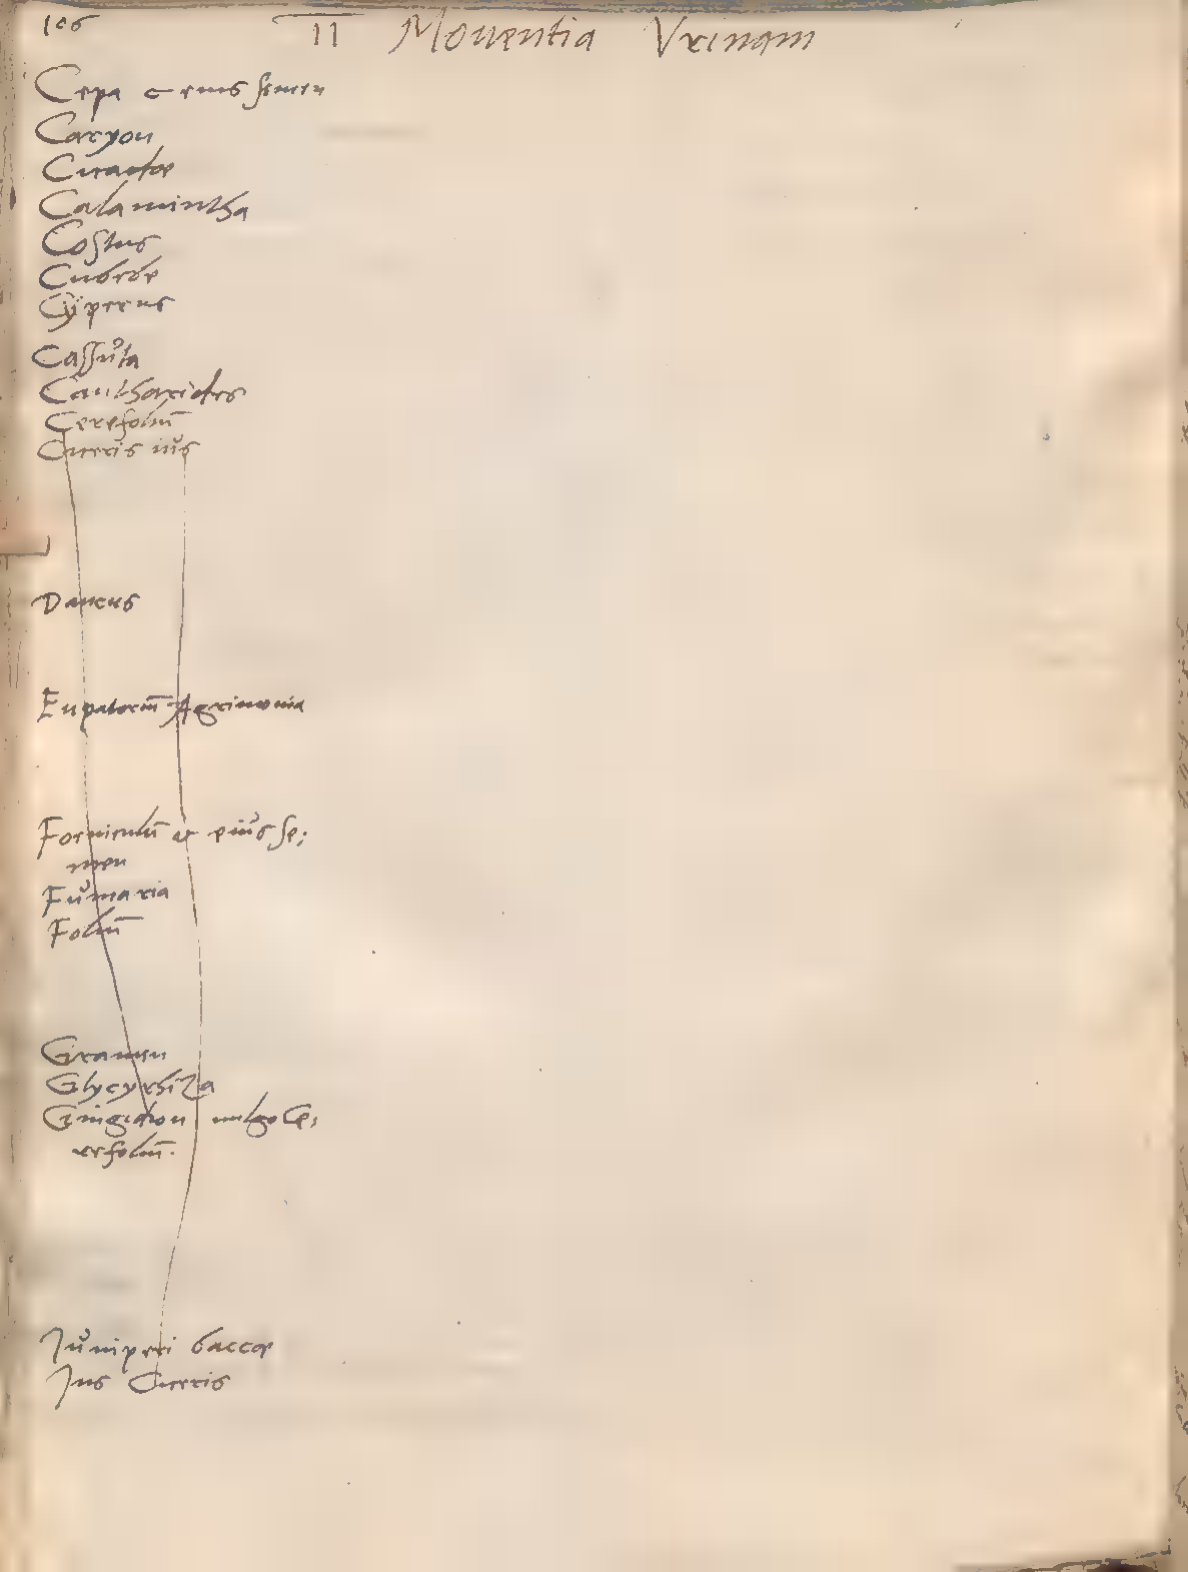 106 II Mouentia Vrinam
Cepa & eius semen
Caryon
Calamintha
Costus
Cubebe
Cyperus
Cassuta
Cantharides
Cerefoliū
Ciceris ius
Daucus
Eupatoriū Agrimonia
Foeniculū et eius se:
men
Fumaria
Foliū
Gramen
Glycyrhiza
Gingidion uulgo Ce,
refoliū.
Juniperi baccae
Jus Ciceris